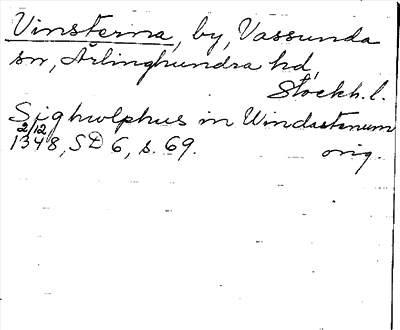 Vinsterna, by, Vassunda
sn, Ärlinghundra hd,
Stockh. l.
Sighwlphus in Windastenum
2/12
1348, SD 6, s. 69. orig.